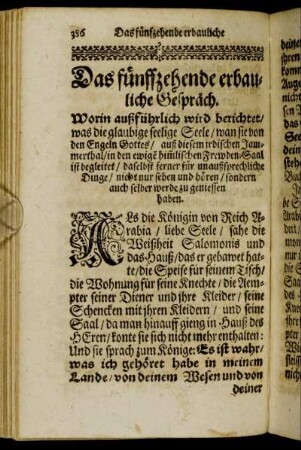 386 Das fünfzehende erbauliche
Das fünffzehende erbau-
liche Gespräch.
Worin außführlich wird berichtet/
was die glaubige seelige Seele/ wan sie von
den Engeln Gottes/ auß diesem irdischen Jam-
merthal/ in den ewigē him̄lischen Frewden-Saal
ist begleitet/ daselbst ferner für unaußsprechliche
Dinge/ nicht nur sehen und hören/ sondern
auch selber werde zu geniessen
haben.
Als die Königin von Reich A-
rabia/ liebe Seele/ sahe die
Weißheit Salomonis und
das Hauß/ das er gebawet hat-
te/ die Speise für seinem Tisch/
die Wohnung für seine Knechte/ die Aem-
pter seiner Diener und jhre Kleider/ seine
Schencken mit jhren Kleidern/ und seine
Saal/ da man hinauff gieng in Hauß des
HErren/ konte sie sich nicht mehr enthalten:
Und sie sprach zum Könige: Es ist wahr/
was ich gehöret habe in meinem
Lande/ von deinem Wesen und von
deiner